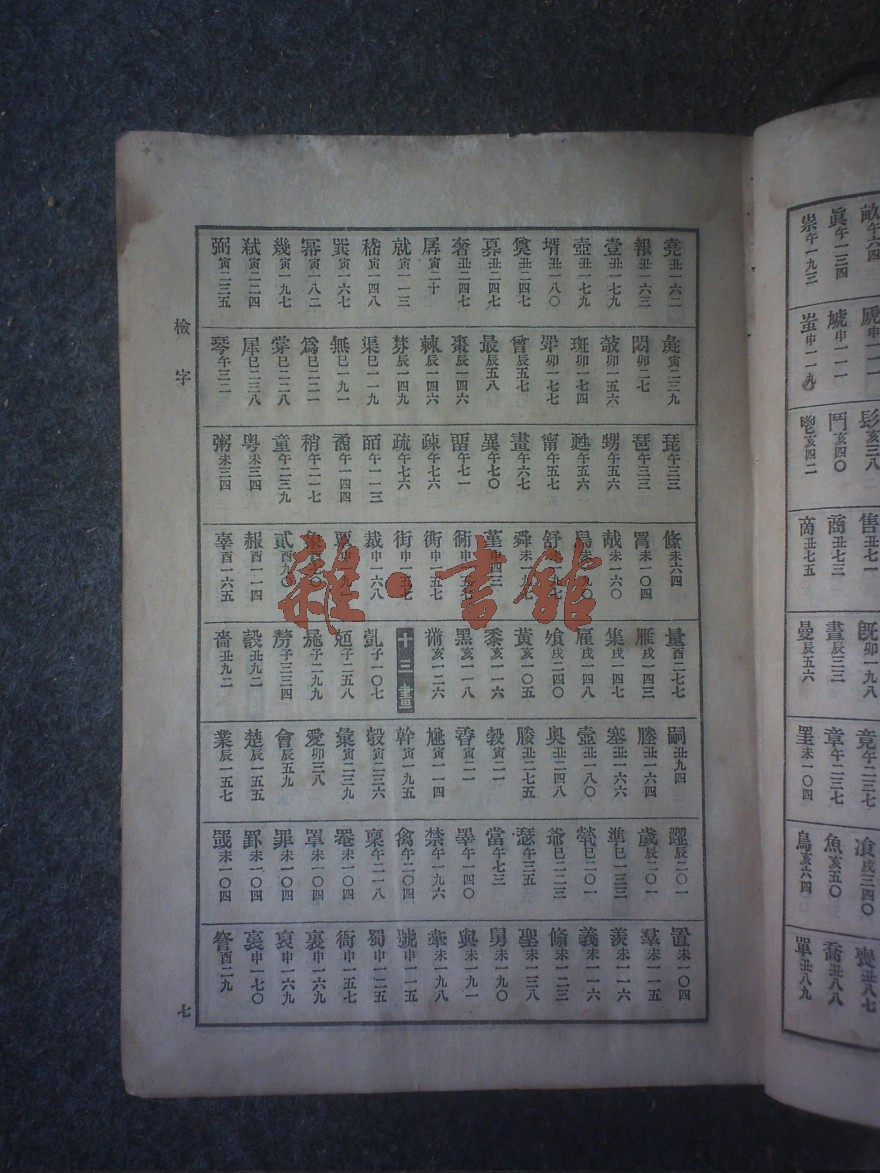 堯丑一六二
報丑一六三
壹丑一七九
壺丑一七九
壻丑一八〇
奠丑二四七
奢丑二四七
孱寅二十
就寅一一三
嵇寅一四八
巽寅一六七
冪寅一八二
幾寅一九七
弑寅二二四
弼寅二三五
彘寅二三九
悶卯二七
攲卯一五六
斑卯一七四
曾辰五七
最辰五八
棗辰一四六
棘辰一四六
棼辰一四九
渠巳一一九
無巳一九一
爲巳二二一
犀巳二三八
琴午三二
琵午三三
琶午三三
甥午五六
甦午五六
甯午五七
畫午六七
異午七〇
畱午七一
疎午七六
疏午七六
皕午一一三
矞午一四四
稍午二一七
童午二三九
粤未三四
粥未三四
絛未六四
胾未一六〇
舒未一九七
舜未一九八
街申一五七
裁申一六八
貳酉九〇
赧酉一一四
辜酉一六五
量酉二七七
雁戌一四三
集戌一四七
雇戌一四八
飧戌二四〇
黃亥一〇五
黍亥一一六
黑亥一一八
黹亥一二六
十三畫
亂子一〇七
勞子三三四
嗇丑九二
嗣丑九四
塍丑一六四
塞丑一六六
壼丑一八〇
奧丑二四八
媵丑二七五
尲寅一一四
幹寅一九五
彀寅二三六
彙寅二三九
愛卯三八
會辰五九
楚辰一五五
業辰一五七
歲辰二〇一
準巳一三三
煢巳二〇一
爺巳二二三
瑟午三五
當午七三
睪午一四〇
禁午一九六
禽午二〇四
稟午二一八
罩未一〇四
罪未一〇四
置未一〇四
羣未一一五
羨未一一六
義未一一六
脩未一二三
聖未一三八
舅未一九〇
與未一九一
號申一一五
蜀申一二五
衙申一五七
裏申一六九
裒申一六九
裛申一七〇
訾酉二九
檢字
七
畝午六四
眞午一三四
祟午一九三
蚩申一一九
鬥亥四〇
鬯亥四二
售丑七一
商丑七三
啇丑七五
旣卯一九八
晝辰三三
曼辰五六
竟午二三七
章午二三七
魚亥五〇
鳥亥六四
飡戌二四〇
喪丑八七
喬丑八八
單丑八九
雜·書館